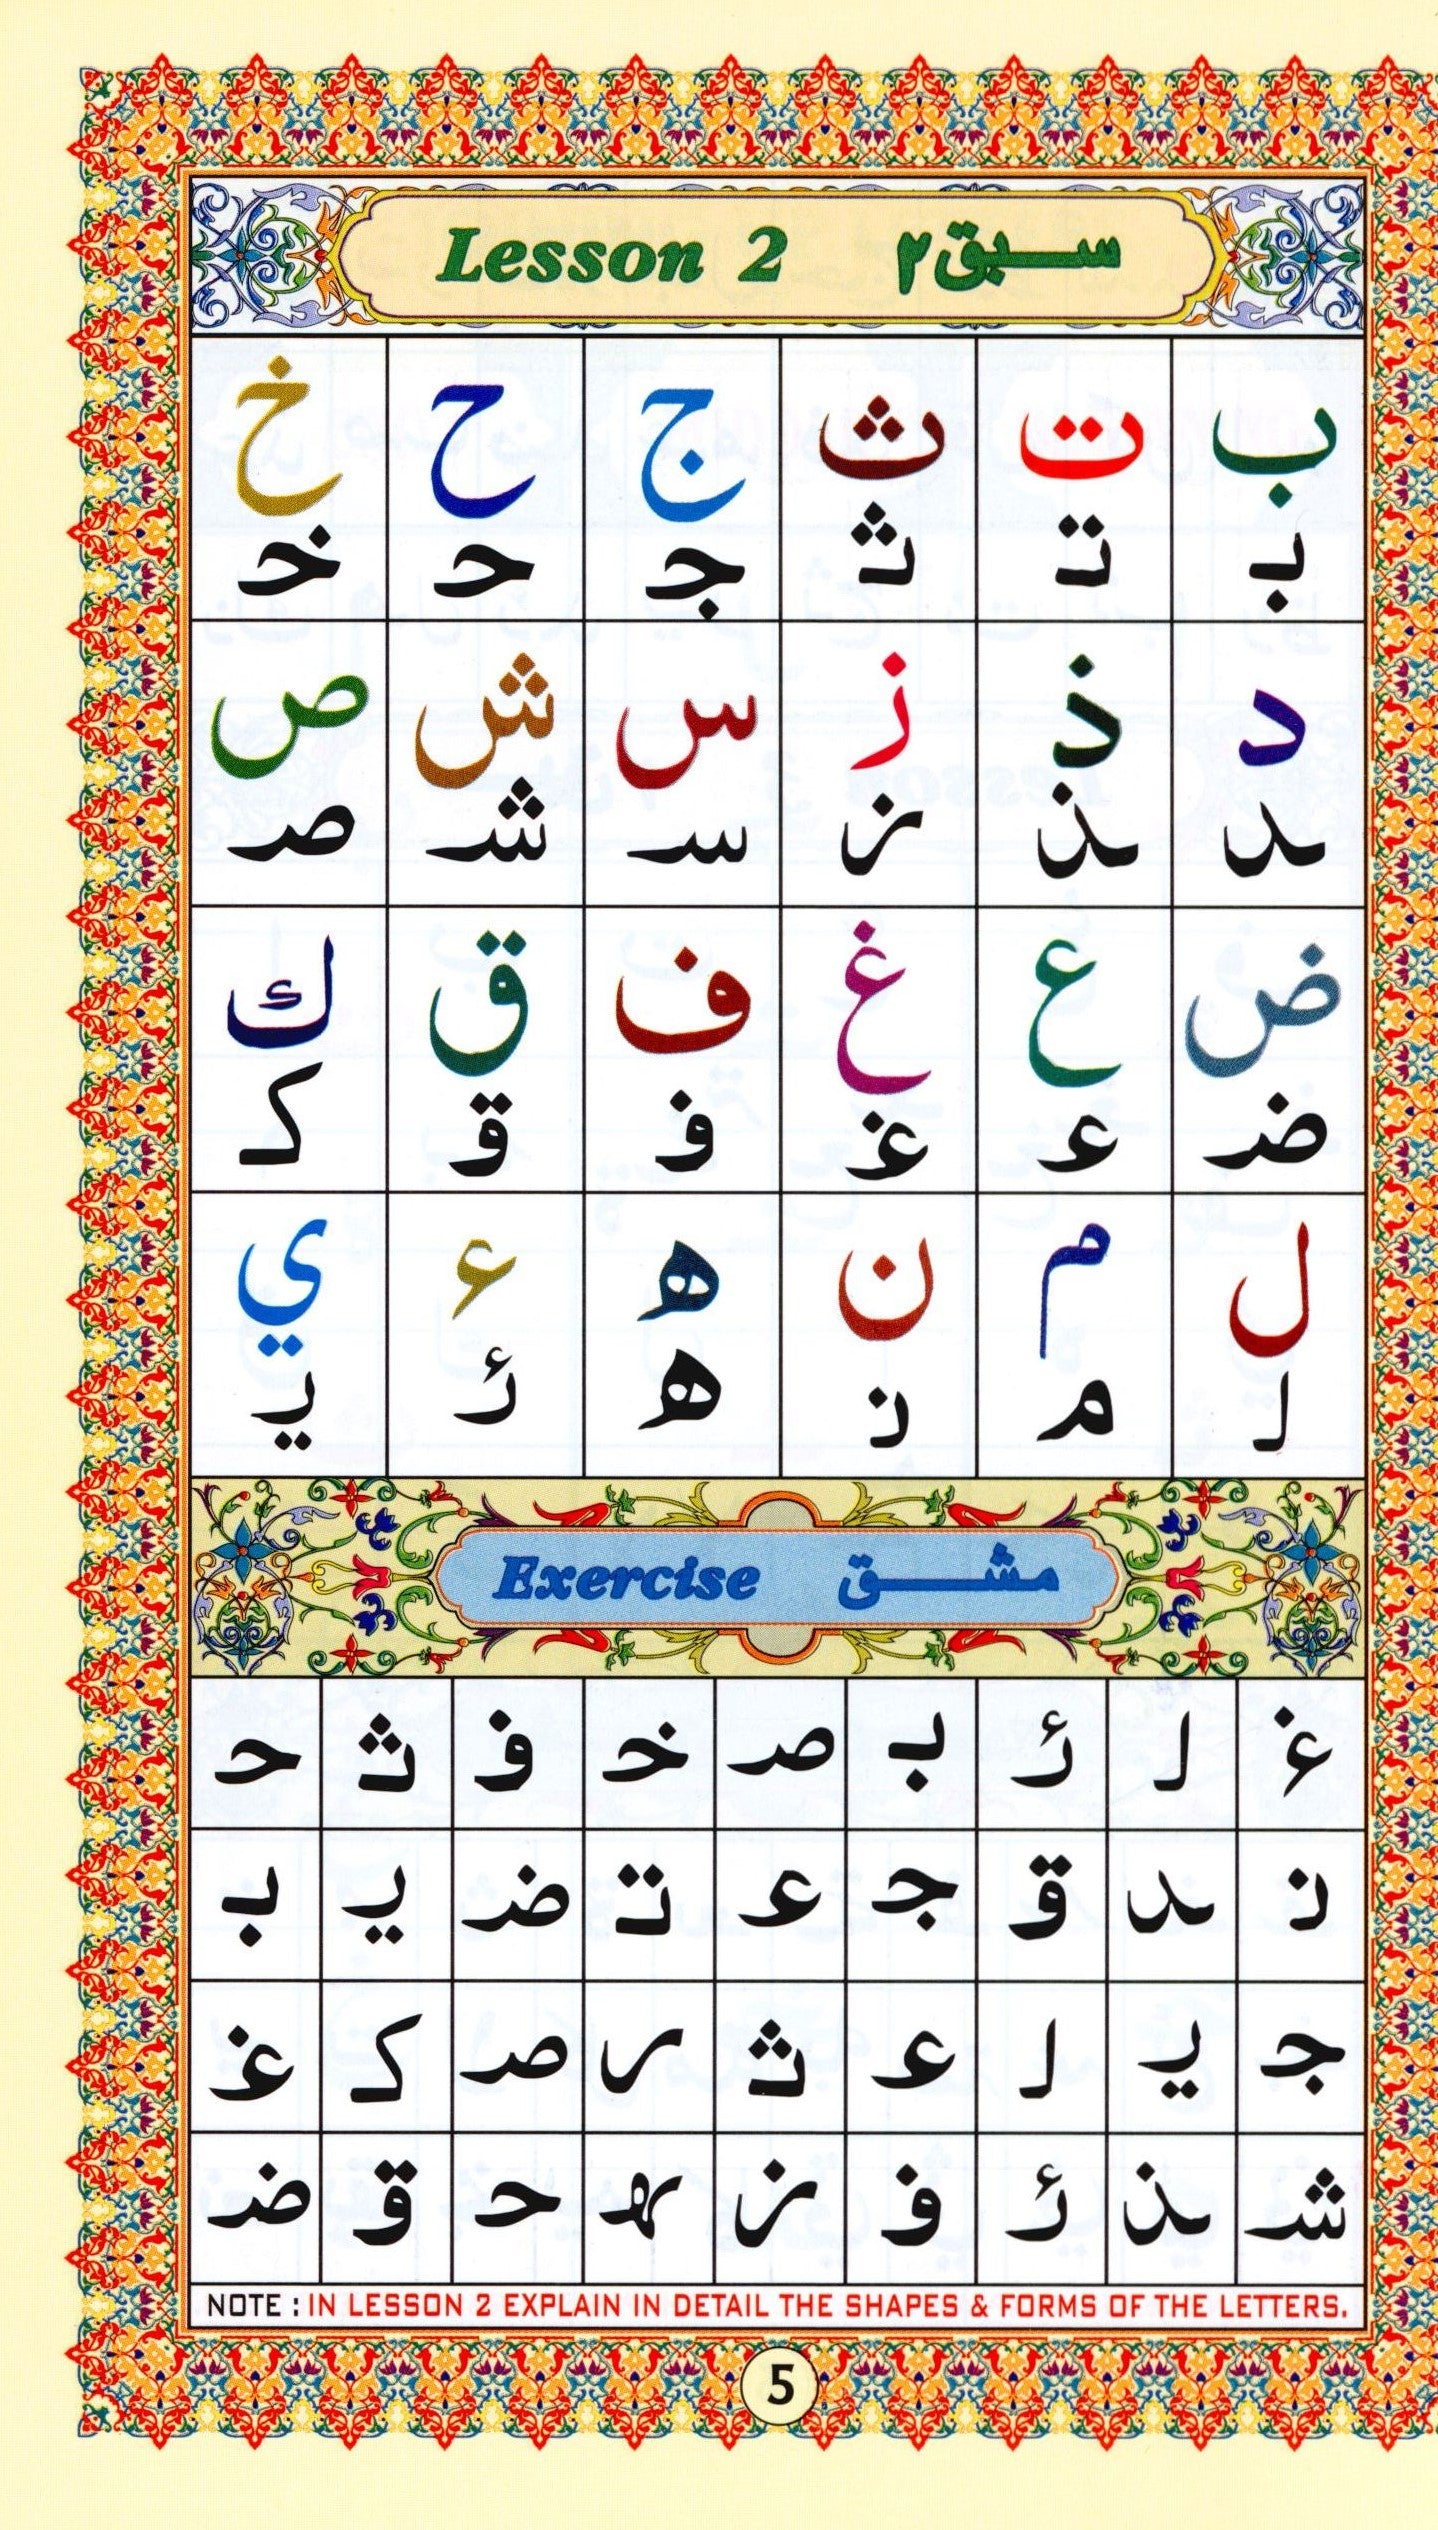 سبق ۲ Lesson 2
ب ت ث ج ح خ
بـ تـ ثـ جـ حـ خـ
د ذ ز س ش ص
ـد ـذ ـز سـ شـ صـ
ض ع غ ف ق ك
ضـ عـ غـ فـ قـ كـ
ل م ن ه ء ي
لـ مـ نـ هـ ئـ يـ
مشق Exercise
غـ لـ ئـ بـ صـ خـ فـ ثـ حـ
نـ ـد قـ جـ عـ تـ ضـ يـ بـ
جـ يـ لـ عـ ثـ ـر صـ كـ غـ
شـ ـذ ئـ فـ ـز ـهـ حـ قـ ضـ
NOTE : IN LESSON 2 EXPLAIN IN DETAIL THE SHAPES & FORMS OF THE LETTERS.
5